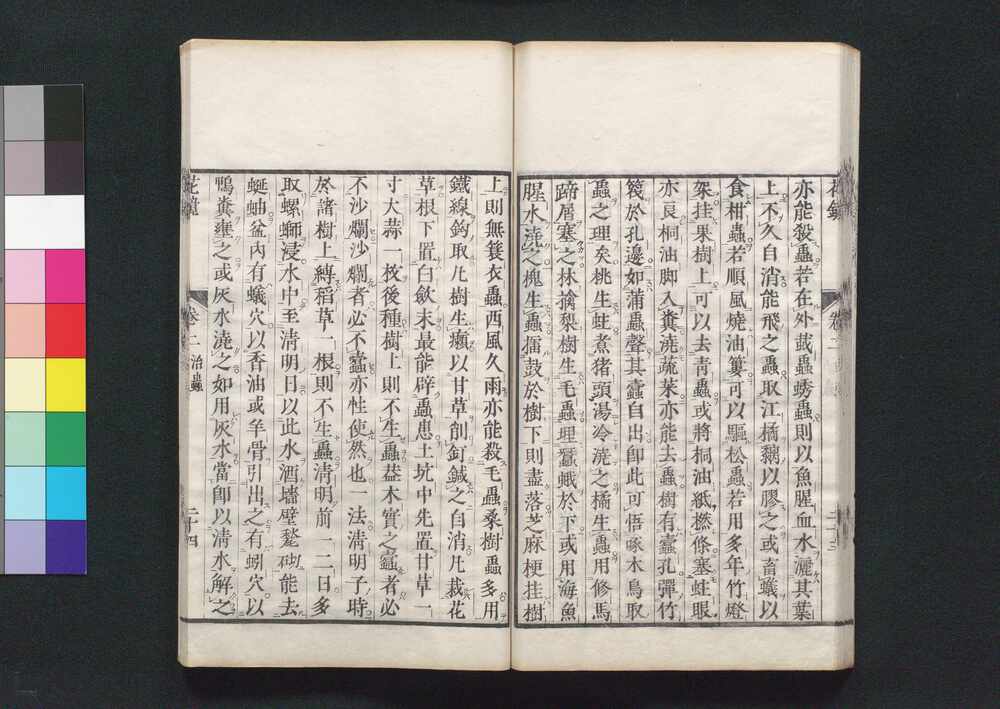 亦能殺蟲若在外蛓蟲蟒蟲則以魚腥血水灑其葉
上不久自消能飛之蟲取江橘黐以膠之或畜蟻以
食柑蟲若順風燒油簍可以驅松蟲若用多年竹燈
架挂果樹上可以去青蟲或將桐油紙撚條塞蛀眼
亦良桐油脚入糞澆蔬菜亦能去蟲樹有蠧孔彈竹
篾於孔邊如蒲蟲聲其蠧自出卽此可悟啄木鳥取
蟲之理矣桃生蛀煮猪頭湯冷澆之橘生蟲用修馬
蹄屑塞之林擒棃樹生毛蟲埋蠶蛾於下或用海魚
腥水澆之槐生蟲擂鼓於樹下則盡落芝麻梗挂樹
上則無簑衣蟲西風久雨亦能殺毛蟲桑樹蟲多用
鐵線鈎取凡樹生癩以甘草削釘鍼之自消凡裁花
草根下置白歛末最能辟蟲患土坑中先置甘草一
寸大蒜一枚後種樹上則不生蟲葢木實之蠧者必
不沙爛沙爛者必不蠧亦性使然也一法淸明子時
於諸樹上縛稻草一根則不生蟲淸明前一二日多
取螺螄浸水中至淸明日以此水洒墻壁甃砌能去
蜒蚰盆內有蟻穴以香油或羊骨引出之有蚓穴以
鴨糞壅之或灰水澆之如用灰水當卽以淸水解之
花鏡
卷二 治蟲
二十四